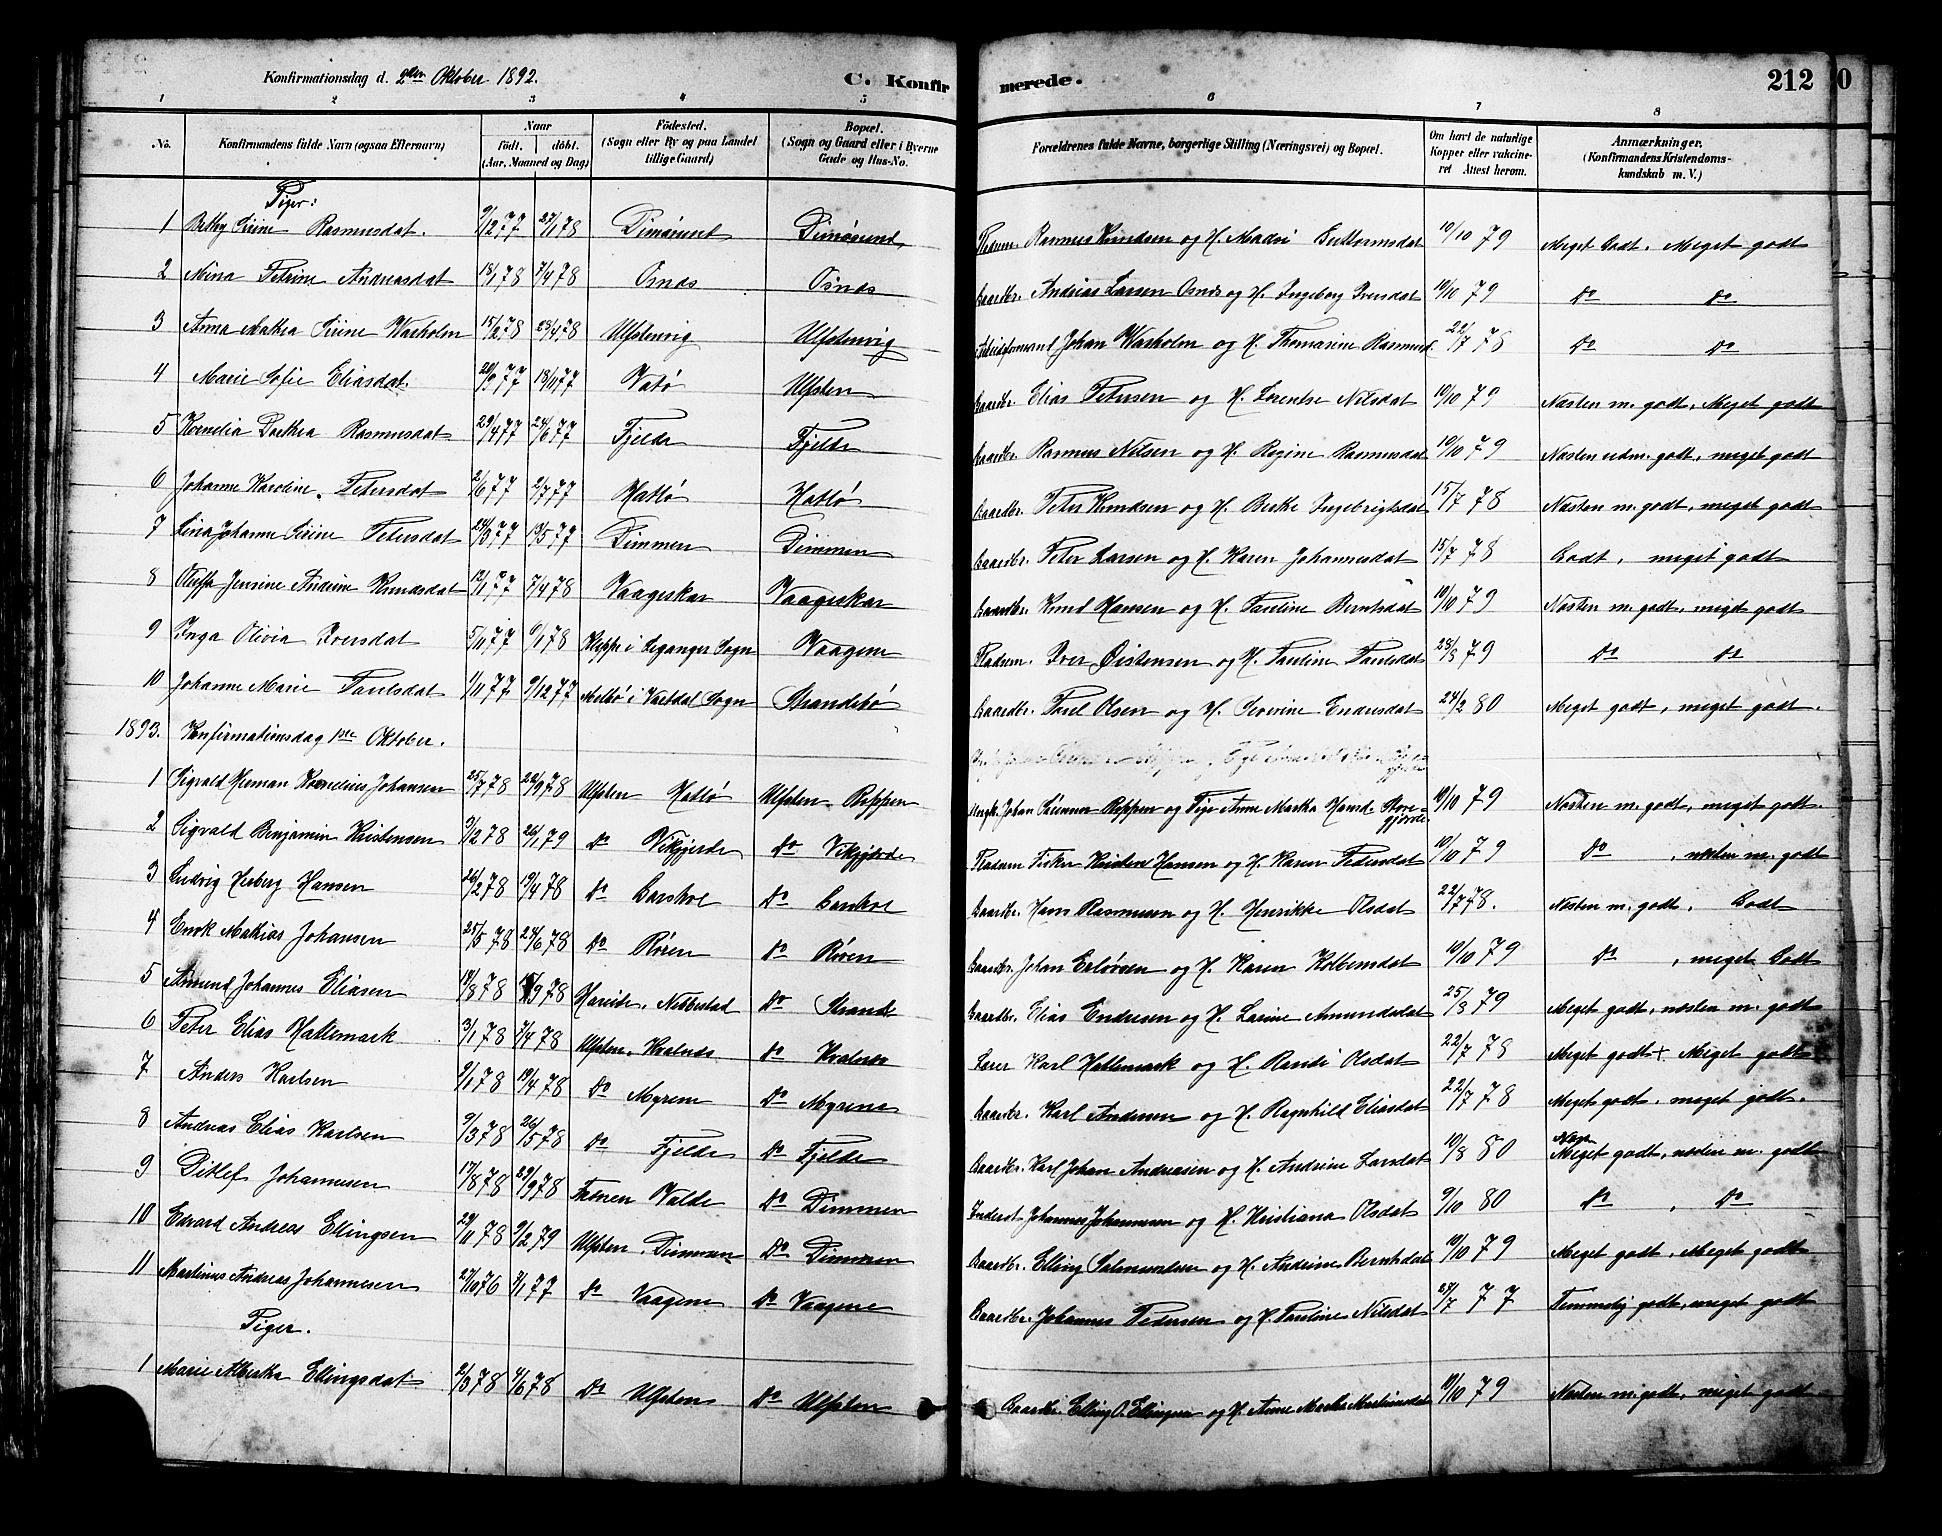 Konfirmationsdag d. 2den Oktober 1892. C. Konfirmerede. 212
1 2 3 4 5 6 7 8
No. Konfirmandens fulde Navn (ogsaa Efternavn) Naar födt. döbt. (Aar, Maaned og Dag) Födested. (Sogn eller By og paa Landet tillige Gaard) Bopæl. (Sogn og Gaard eller i Byerne Gade og Hus-No. Forældrenes fulde Navne, borgerlige Stilling (Næringsvei) og Bopæl. Om havt de naturlige Kopper eller vakcineret Attest herom. Anmærkninger. (Konfirmandens Kristendomskundskab m. V.)
Piger:
1 Bethy Sirine Rasmusdat. 9/12 77 27/1 78 Dimösund Dimösund Rasmus Knudsen og H. Madsi Guttormsdat 10/10 79 Meget Godt, Meget godt
2 Mina Petrine Andreasdat 18/1 78 7/4 78 Osnes Osnes Gaardbr. Andreas Larsen Osnes og H. Ingeborg Iversdat 10/10 79 Do Do
3 Anna Mathea Sirine Warholm 15/2 78 23/4 78 Ulfstenvig Ulfstenvig Arbeidsformand Johan Warholm og H. Thomasine Rasmusd. 22/7 78 Do Do
4 Marie Sofie Eliasdat. 13/11 77 Vatö Ulfsten Gaardbr. Elias Petersen og H. Lorentse Nilsdat 10/10 79 Næsten m. godt, Meget godt
5 Kornelia Dorthea Rasmusdat 29/4 77 24/6 77 Fjelde Fjelde Gaardbr. Rasmus Nilsen og H. Regine Rasmusdat 10/10 79 Næsten udm. godt, meget godt
6 Johanne Karoline Petersdat 2/6 77 2/7 77 Hatlö Hatlö Gaardbr. Peter Knudsen og H. Berthe Ingebrigtsdat 15/7 78 Næsten m. godt, meget godt
7 Lina Johanne Sirine Petersdat 24/3 77 13/5 77 Dimmen Dimmen Gaardbr. Peter Larsen og H. Karen Johannesdat 15/7 78 Godt, meget godt
8 Oluffa Jensine Andrine Knudsdat 7/4 78 Vaageskar Vaageskar Gaardbr. Knud Hansen og H. Pauline Berntsdat 10/10 79 Næsten m. godt, meget godt
9 Inga Olivia Iversdat 5/11 77 6/1 78 Kleppe i Leganger Sogn Vaagene Iver Øistensen og H. Pauline Paulsdat 28/8 79 Do Do
10 Johanne Marie Paulsdat 1/11 77 9/12 77 i Vartdal Sogn Strandebö Gaardbr. Paul Olsen og H. Severine Endresdat 24/2 80 Meget godt, meget godt.
1893. Konfirmationsdag 1ste Oktober.
1 Sigvald Herman Kornelius Johansen 25/7 78 22/9 78 Ulfsten Hatlö Ulfsten Reppen Johan Reppen og Pige Anne Martha Hansd. Storegjerde 10/10 79 Næsten m. godt, meget godt.
2 Sigvald Benjamin Kristensen 3/12 78 26/1 79 Do Vikgjerde Do Vikgjerde Fisker Kristen Hansen og H. Karen Pedersdat 10/10 79 Do, næsten m. godt
3 Ludvig Herberg Hansen 26/2 78 19/4 78 Do Garshol Do Garshol Gaardbr. Hans Rasmusen og H. Henrikke Olsdat 22/7 78. Næsten m. godt, Godt
4 Enok Mathias Johansen 25/5 78 24/6 78 Do Rören Do Rören Gaardbr. Johan Erlövsen og H. Karen Kolbensdat 10/10 79 Do, meget Godt
5 Amund Johannes Eliasen 18/8 78 15/9 78 Hareide, Nebbestad Do Strande Gaardbr. Elias Endresen og H. Larine Amundsdat 25/8 79 Meget godt, næsten m. godt
6 Peter Elias Hattemark 3/1 78 7/4 78 Ulfsten, Kvalnes Do Kvalnes Lærer Karl Hattemark og H. Randi Olsdat 22/7 78 Meget godt +, Meget godt
7 Anders Karlsen 9/1 78 19/4 78 Do Myrene Do Myrene Gaardbr. Karl Andersen og H. Ragnhild Eliasdat 22/7 78 Meget godt, meget godt.
8 Andreas Elias Karlsen 9/3 78 26/5 78 Do Fjelde Do Fjelde Gaardbr. Karl Johan Andreasen og H. Andrine Larsdat 10/8 80 Meget godt, næsten m. godt
9 Ditlef Johannesen 17/8 78 29/9 78 Valde Do Dimmen Inderst Johannes Johannesen og H. Kristiana Olsdat 9/10 80 Do, Do
10 Edvard Andreas Ellingsen 29/11 78 9/2 79 Ulfsten, Dimmen Do Dimmen Gaardbr. Elling Salmundsen og H. Andrine Berntsdat 10/10 79 Meget godt, Meget godt
11 Martinus Andreas Johannesen 27/10 76 7/1 77 Do Vaagene Do Vaagene Gaardbr. Johannes Pedersen og H. Pauline Nilsdat 27/7 77 Temmelig godt, meget godt
Piger.
1 Marie Albertha Ellingsdat 2/3 78 4/6 78 Do Ulfsten Do Ulfsten Gaardbr. Elling O. Ellingsen og H. Anne Marthe Martinusdat 10/10 79 Næsten m. godt, meget godt